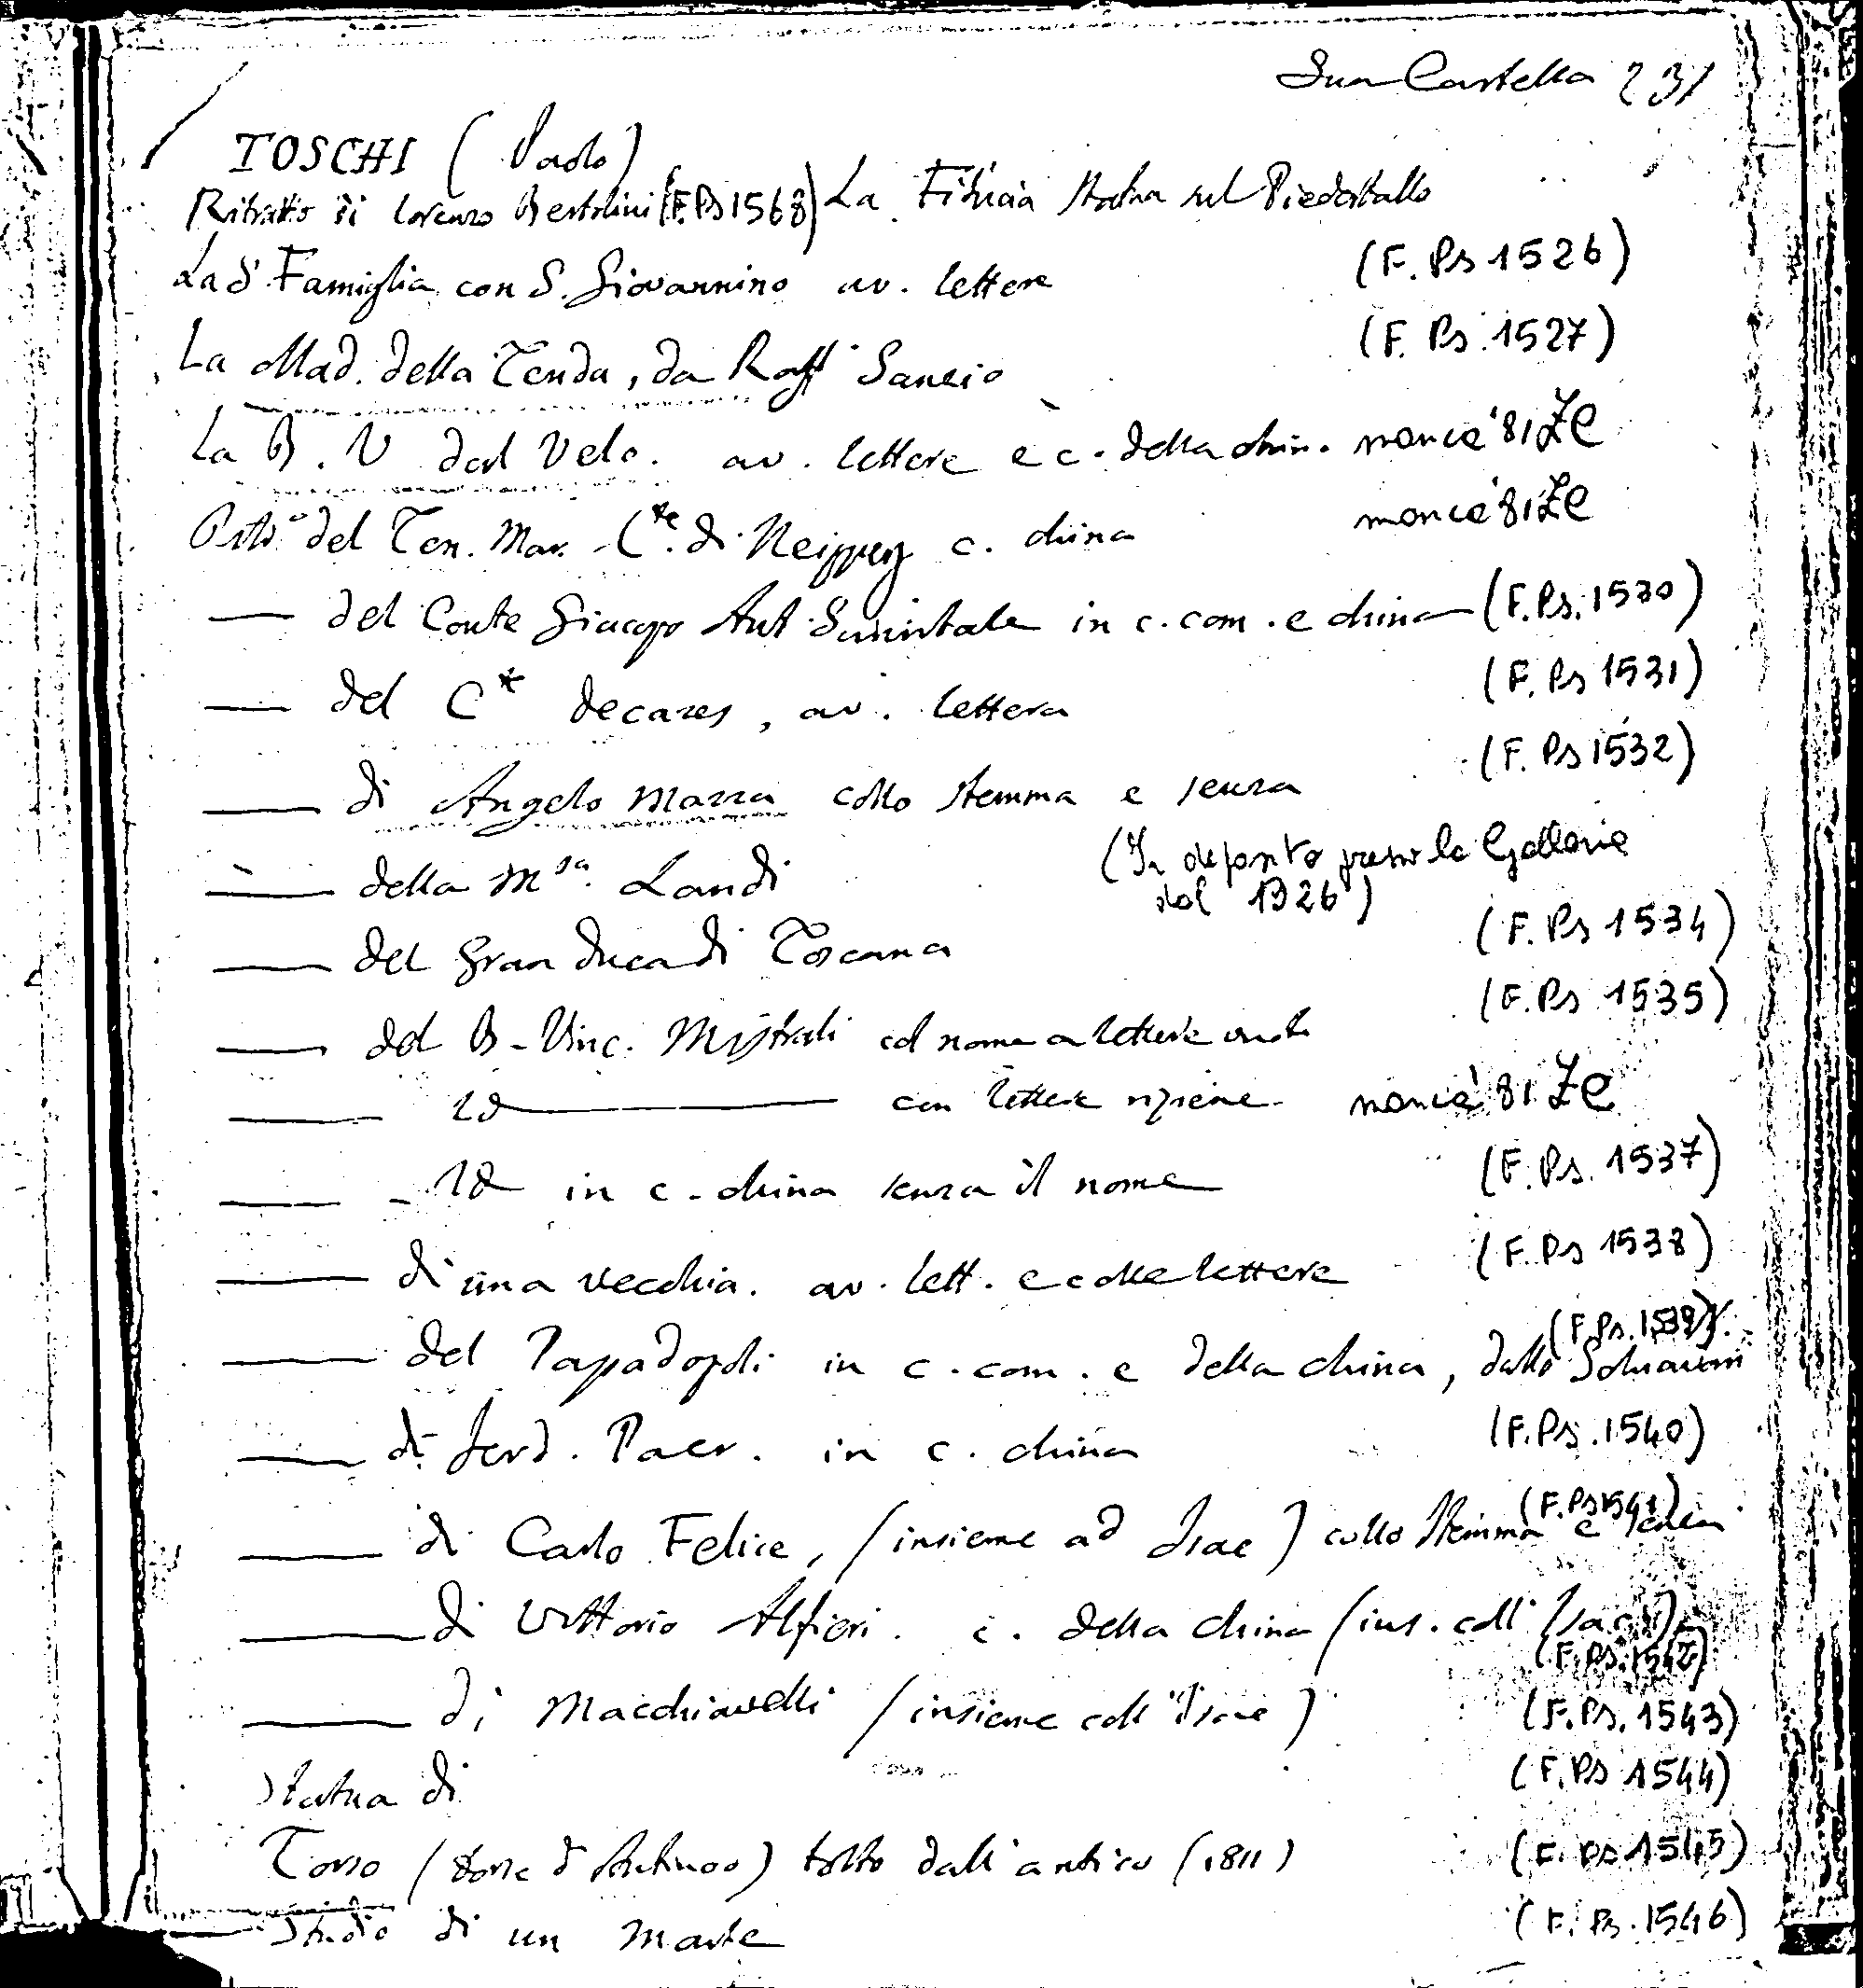 Sua Cartella 231
TOSCHI (Paolo)
Ritratto di Lorenzo Bertolini (F. Ps 1568) La Fiducia statua sul Piedestallo
La S. Famiglia con S. Giovannino av. lettere (F. Ps 1526)
La Mad. della Tenda, da Raff Sanzio (F. Ps. 1527)
La B. V del Velo. av. lettere e c. della chin. manca '81
del Ten. Mar. Cte. di Neipperg c. china manca '81
— del Conte Giacopo Ant. Sanvitale in c. com. e china (F. Ps. 1530)
— del C Decazes, av. lettera (F. Ps 1531)
— di Angelo Mazza collo stemma e senza (F. Ps 1532)
— della Msa. Landi (In deposito presso la Galleria
dal 1926)
— del Gran Duca di Toscana (F. Ps 1534)
— del B. Vinc. Mistrali col nome a lettere vuote (F. Ps 1535)
— Id — con lettere ripiene manca '81
— Id in c. china senza il nome (F. Ps. 1537)
— di una vecchia. av. lett. e colle lettere (F. Ps 1538)
— del Papadopoli in c. com. e della china, dallo Schiavoni (F. Ps. 1539)
— di Ferd. Paer. in c. china (F. Ps. 1540)
— di Carlo Felice, (insieme ad Isac) collo stemma e senza (F. Ps 1541)
— di Vittorio Alfieri. c. della china (ins. coll' Isac)
(F. Ps. 1542)
— di Macchiavelli (insieme coll' Isac) (F. Ps. 1543)
Statua di (F. Ps 1544)
Torso (forse d'Antinoo) tolto dall'antico (1811) (F. Ps 1545)
Studio di un Marte (F. Ps. 1546)